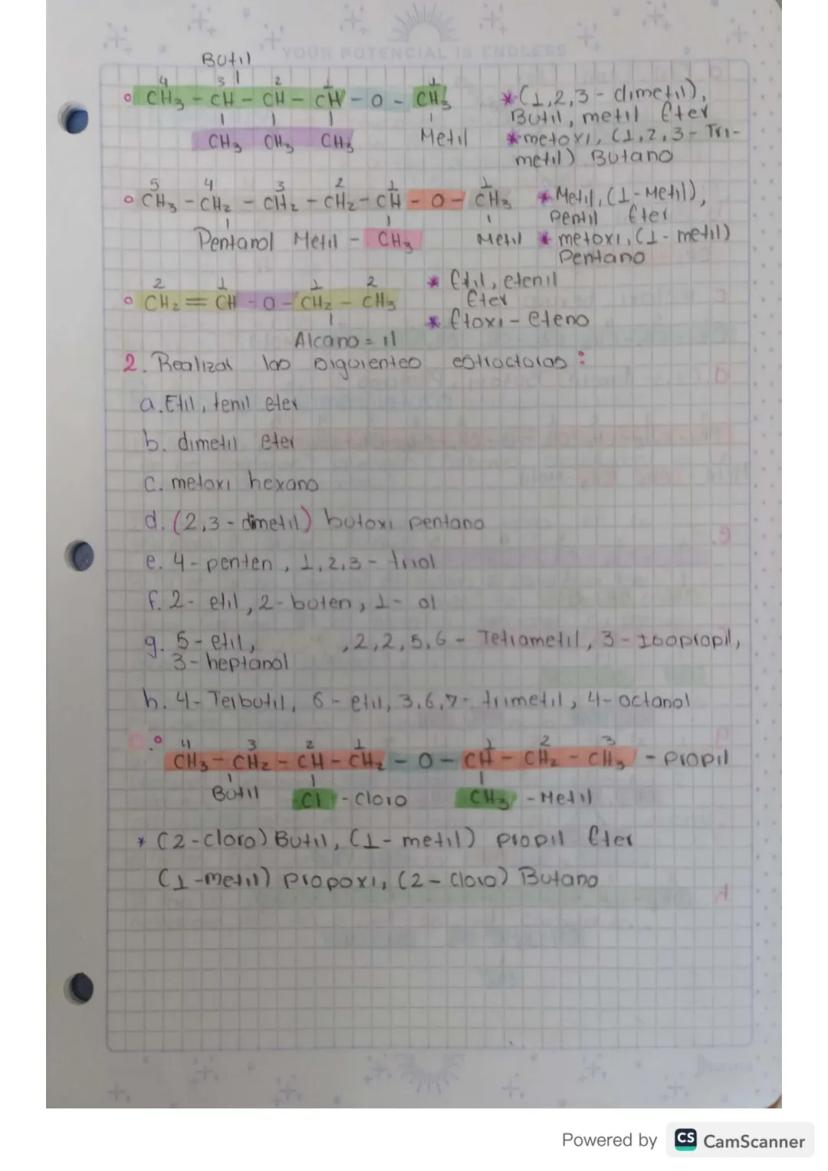 YOUR POTENCIAL IS ENDLESS
Butil
4 3 2 1 1
CH3 - CH - CH - CH - O - CH3
CH3 CH3 CH3 Metil
* (1,2,3 - dimetil),
Butil, metil Eter
* metoxi, (1,2,3 - Tri-
metil) Butano
5 4 3 2 1 1
CH3 - CH2 - CH2 - CH2 - CH - O - CH3
Pentanol Metil - CH3 Metil
* Metil, (1-Metil),
Pentil Eter
* metoxi, (1-metil)
Pentano
2 1 1 2
CH2 = CH - O - CH2 - CH3
Alcano = il
* Etil, etenil
Eter
* Etoxi - Eteno
2. Realizar las siguientes estructuras:
a. Etil, fenil eter
b. dimetil eter
c. metoxi hexano
d. (2,3 - dimetil) butoxi pentano
e. 4 - penten, 1,2,3 - triol
f. 2 - etil, 2 - buten, 1 - ol
g. 5 - etil, , 2, 2, 5, 6 - Tetrametil, 3 - Isopropil,
3 - heptanol
h. 4 - Terbutil, 6 - etil, 3, 6, 7 - trimetil, 4 - octanol
4 3 2 1 1 2 3
CH3 - CH2 - CH - CH2 - O - CH - CH2 - CH3 - Propil
Butil Cl - Cloro CH3 - Metil
* (2-cloro) Butil, (1- metil) propil Eter
(1-metil) Propoxi, (2- cloro) Butano
Powered by CS CamScanner